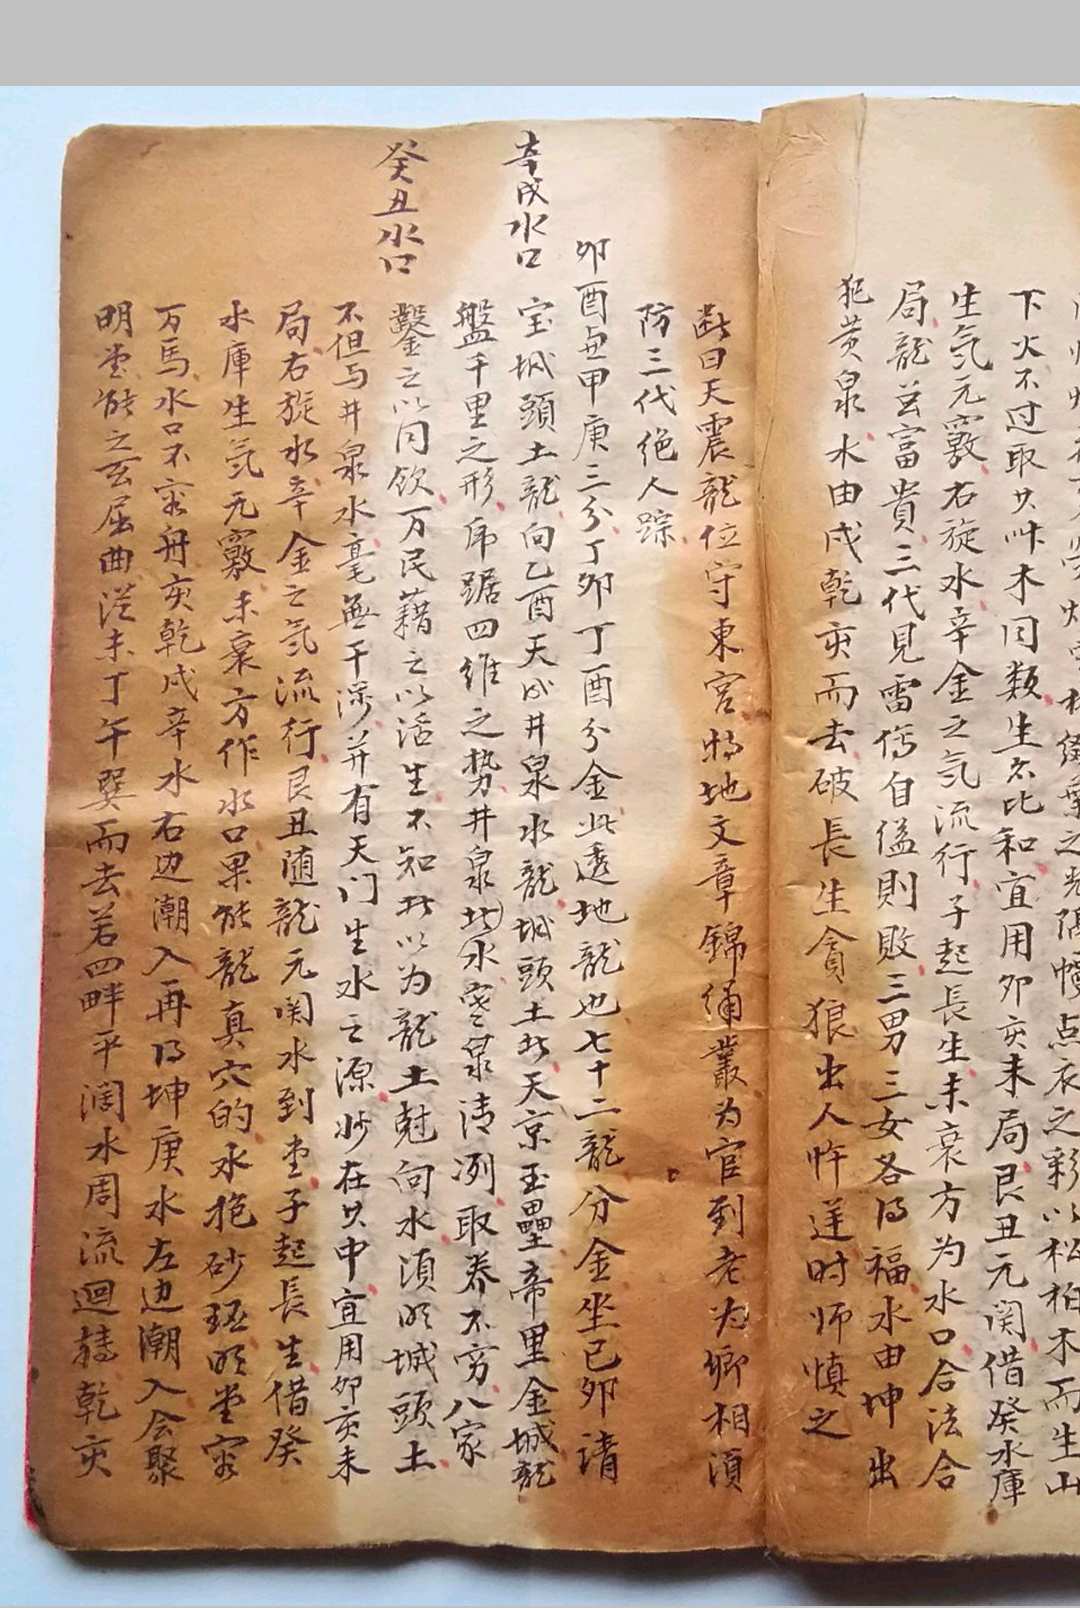 下火不过取其叶木同類生气比和宜用卯亥未局艮丑元関借癸水庫
生気元竅右旋水辛金之気流行子起長生未衰方为水口合法合
局龍並富貴三代見雷傷自縊則敗三男三女各得福水由坤出
犯黄泉水由戌乾亥而去破長生貪狼出人忤逆时师慎之
断曰天震龍位守東宫特地文章錦绣叢为官到老为卿相須
防三代绝人踪
卯酉兼甲庚三分丁卯丁酉分金此透地龍也七十二龍分金坐己卯清
辛戌水口
宝城頭土龍向乙酉天成井泉水龍城頭土此天京玉壘帝里金城龍
盤千里之形虎踞四維之势井泉此水寒泉清冽取养不穷八家
癸丑水口
鑿之以同飲万民藉之以活生不知所以为龍土尅向水須明城頭土
不但与井泉水毫無干涉并有天门生水之源妙在其中宜用卯亥未
局右旋水辛金之気流行艮丑随龍元関水到堂子起長生借癸
水庫生気元竅未衰方作水口果然龍真穴的水抱砂环明堂容
万馬水口不容舟亥乾戌辛水右边潮入再得坤庚水左边潮入会聚
明堂然之玄屈曲従未丁午巽而去若四畔平阔水周流迴轉乾亥